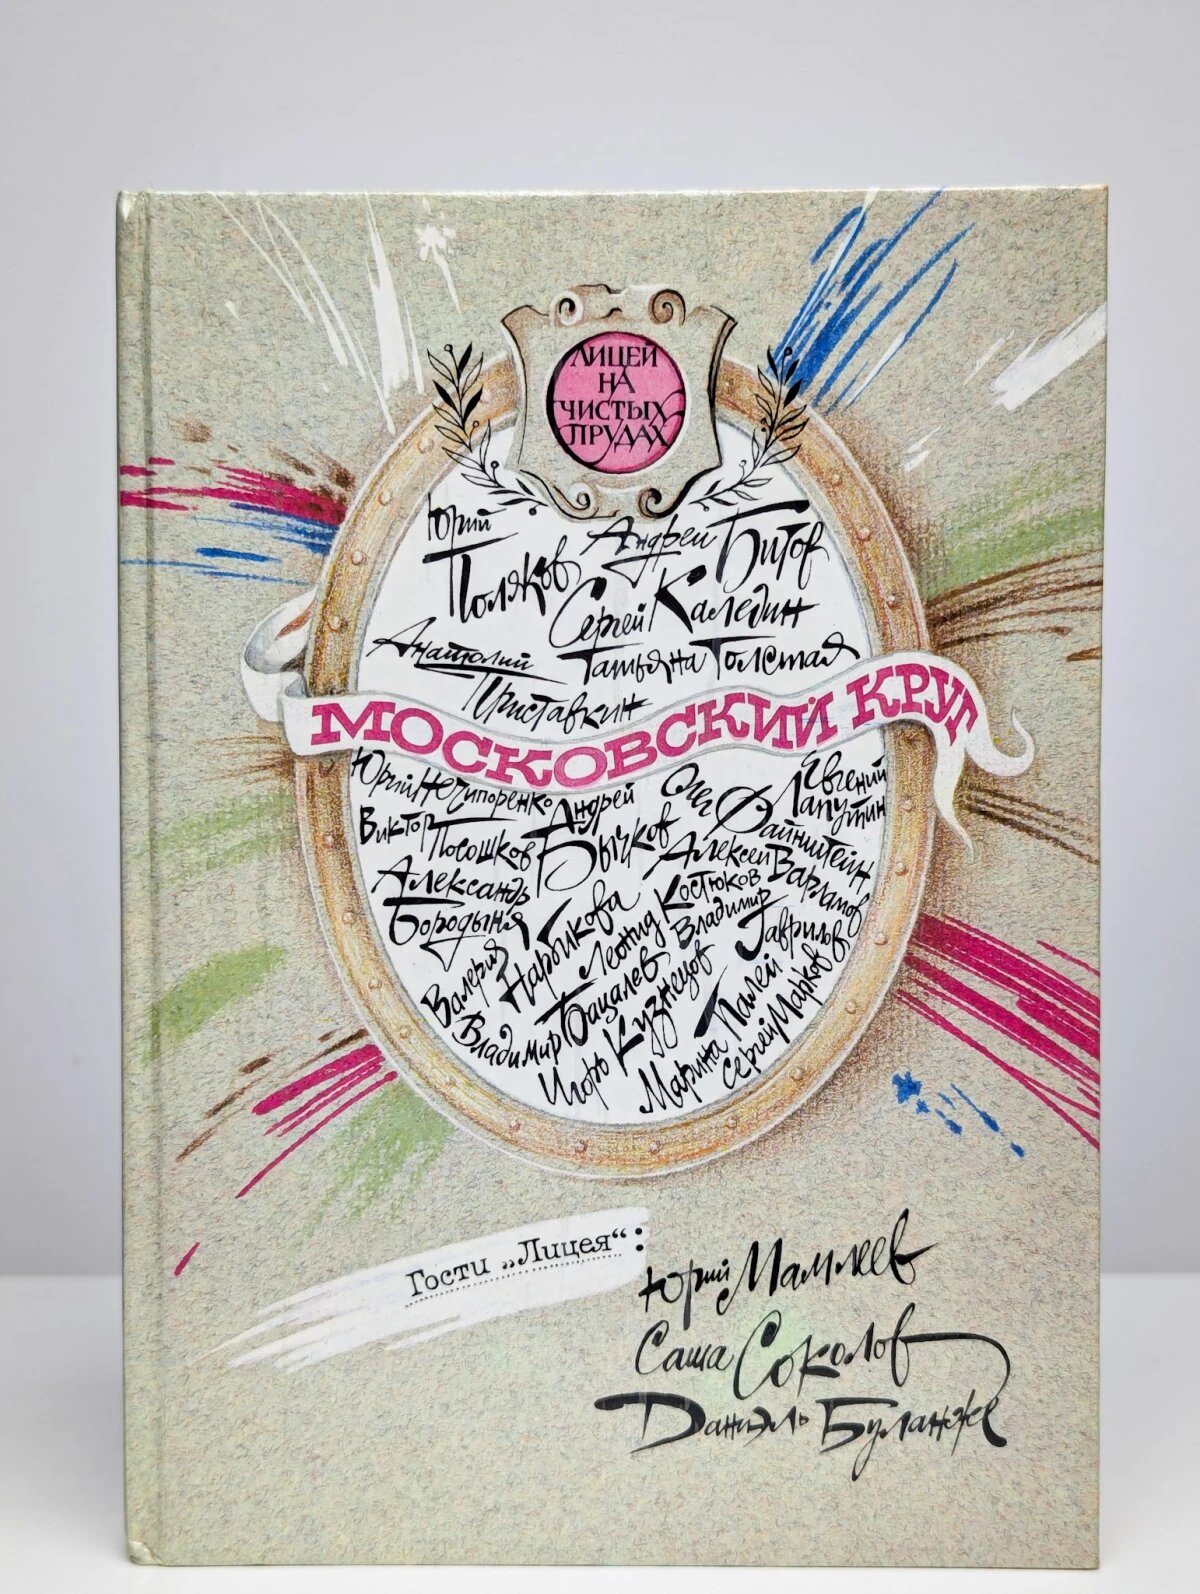 ЛИЦЕЙ
НА
ЧИСТЫХ
ПРУДАХ
Юрий
Поляков
Андрей Битов
Сергей Каледин
Анатолий
Приставкин
Татьяна Толстая
МОСКОВСКИЙ КРУГ
Юрий Нечипоренко
Виктор Посошков
Андрей
Бычков
Олег
Файнштейн
Евгений
Лапутин
Александр
Бородыня
Алексей Варламов
Валерия Нарбикова
Леонид Костюков
Владимир Гаврилов
Владимир Бацалев
Игорь Кузнецов
Марина Палей
Сергей Марков
Гости „Лицея“:
Юрий Мамлеев
Саша Соколов
Даниэль Буланже